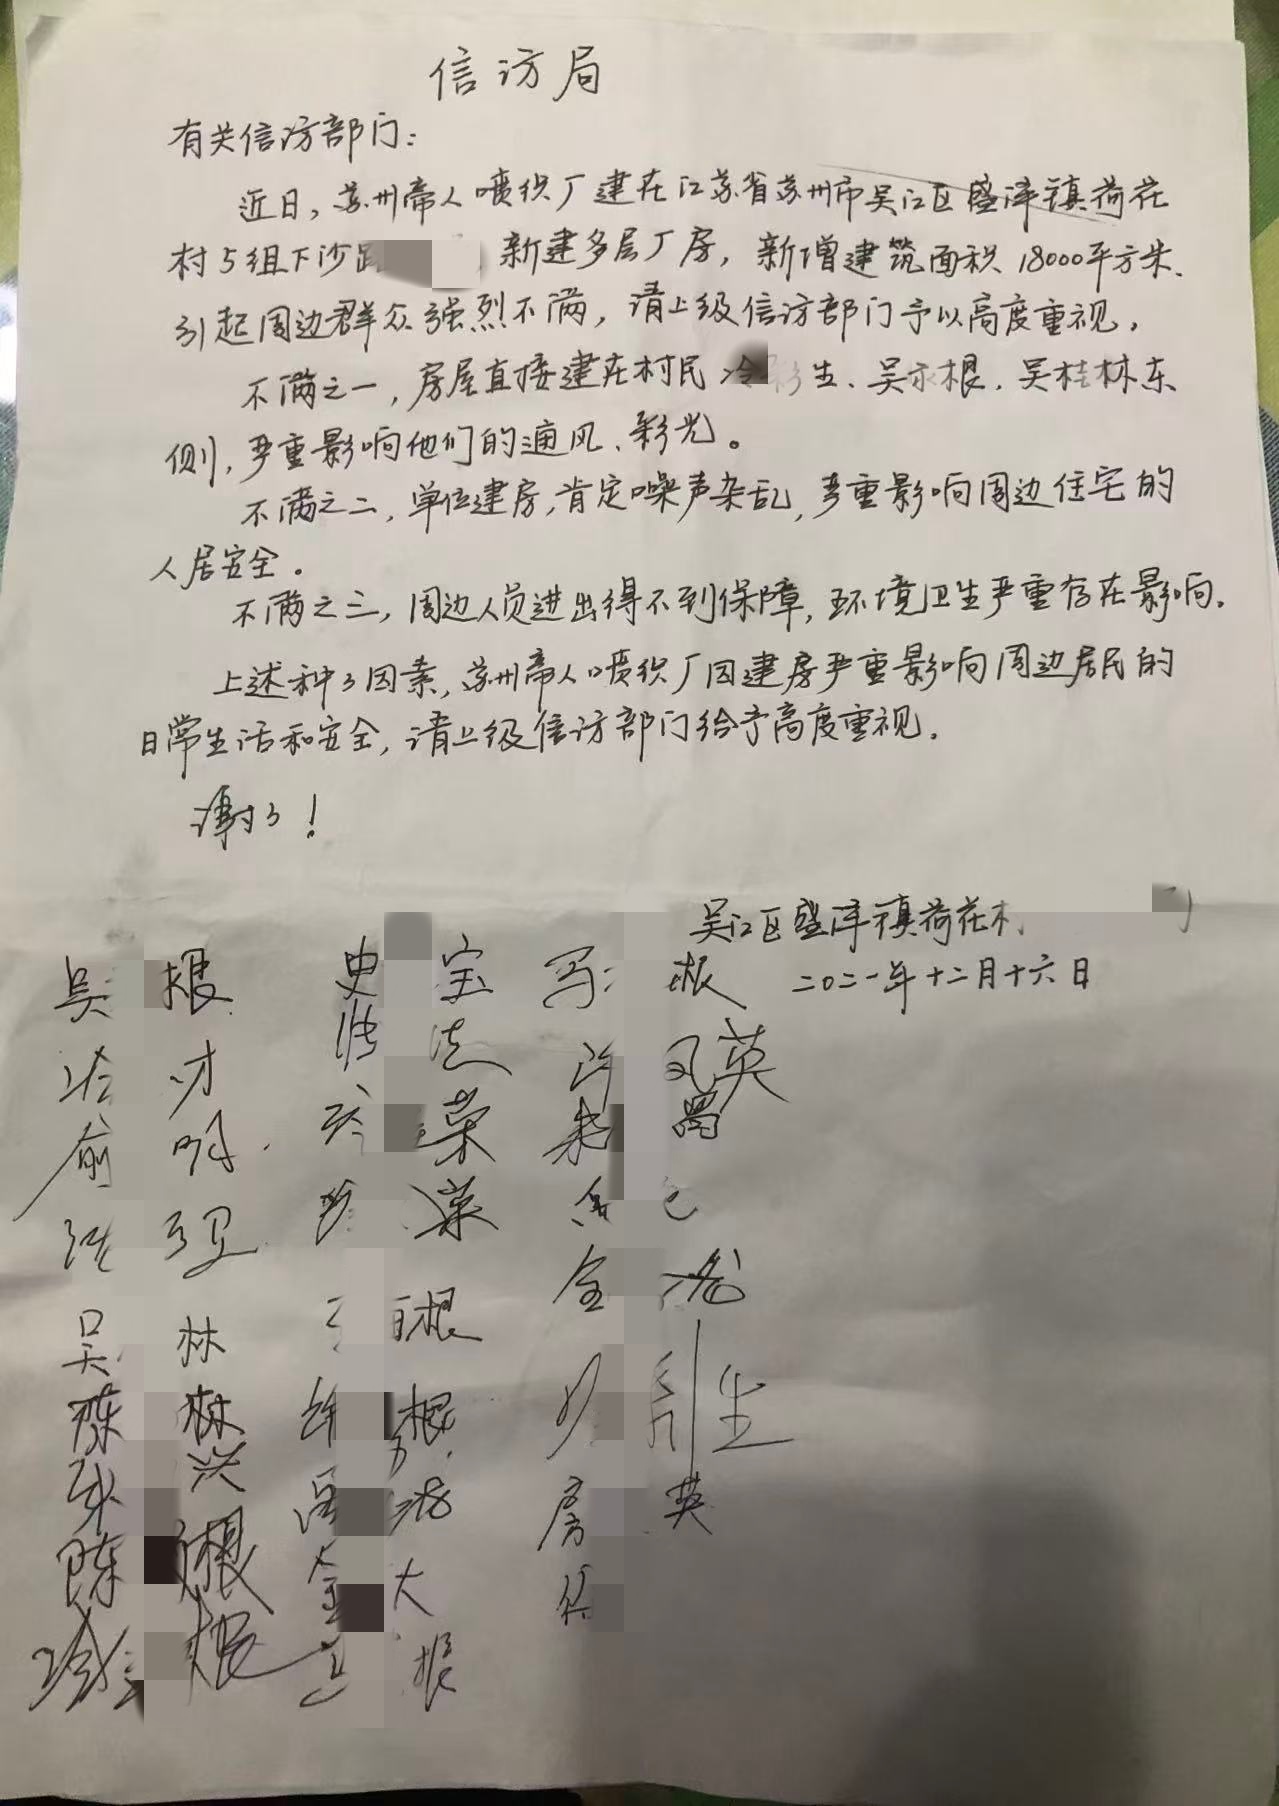 信访局
有关信访部门：
近日，苏州帝人喷织厂建在江苏省苏州市吴江区盛泽镇荷花
村5组下沙 新建多层厂房，新增建筑面积18000平方米.
引起周边群众强烈不满，请上级信访部门予以高度重视。
不满之一，房屋直接建在村民 生、吴永根、吴桂林东
侧，严重影响他们的通风、彩光。
不满之二，单位建房，肯定噪声杂乱，严重影响周边住宅的
人居安全。
不满之三，周边人员进出得不到保障，环境卫生严重存在影响。
上述种々因素，苏州帝人喷织厂因建房严重影响周边居民的
日常生活和安全，请上级信访部门给予高度重视。
谢々！
吴江区盛泽镇荷花
二〇二一年十二月十六日
吴 根 史 宝 冯 根
才 英
俞 明 荣 朱
荣
全
吴 林 根
陈 林 徐 根 生
张 兴 英
陈 根 金 大 房
根 根